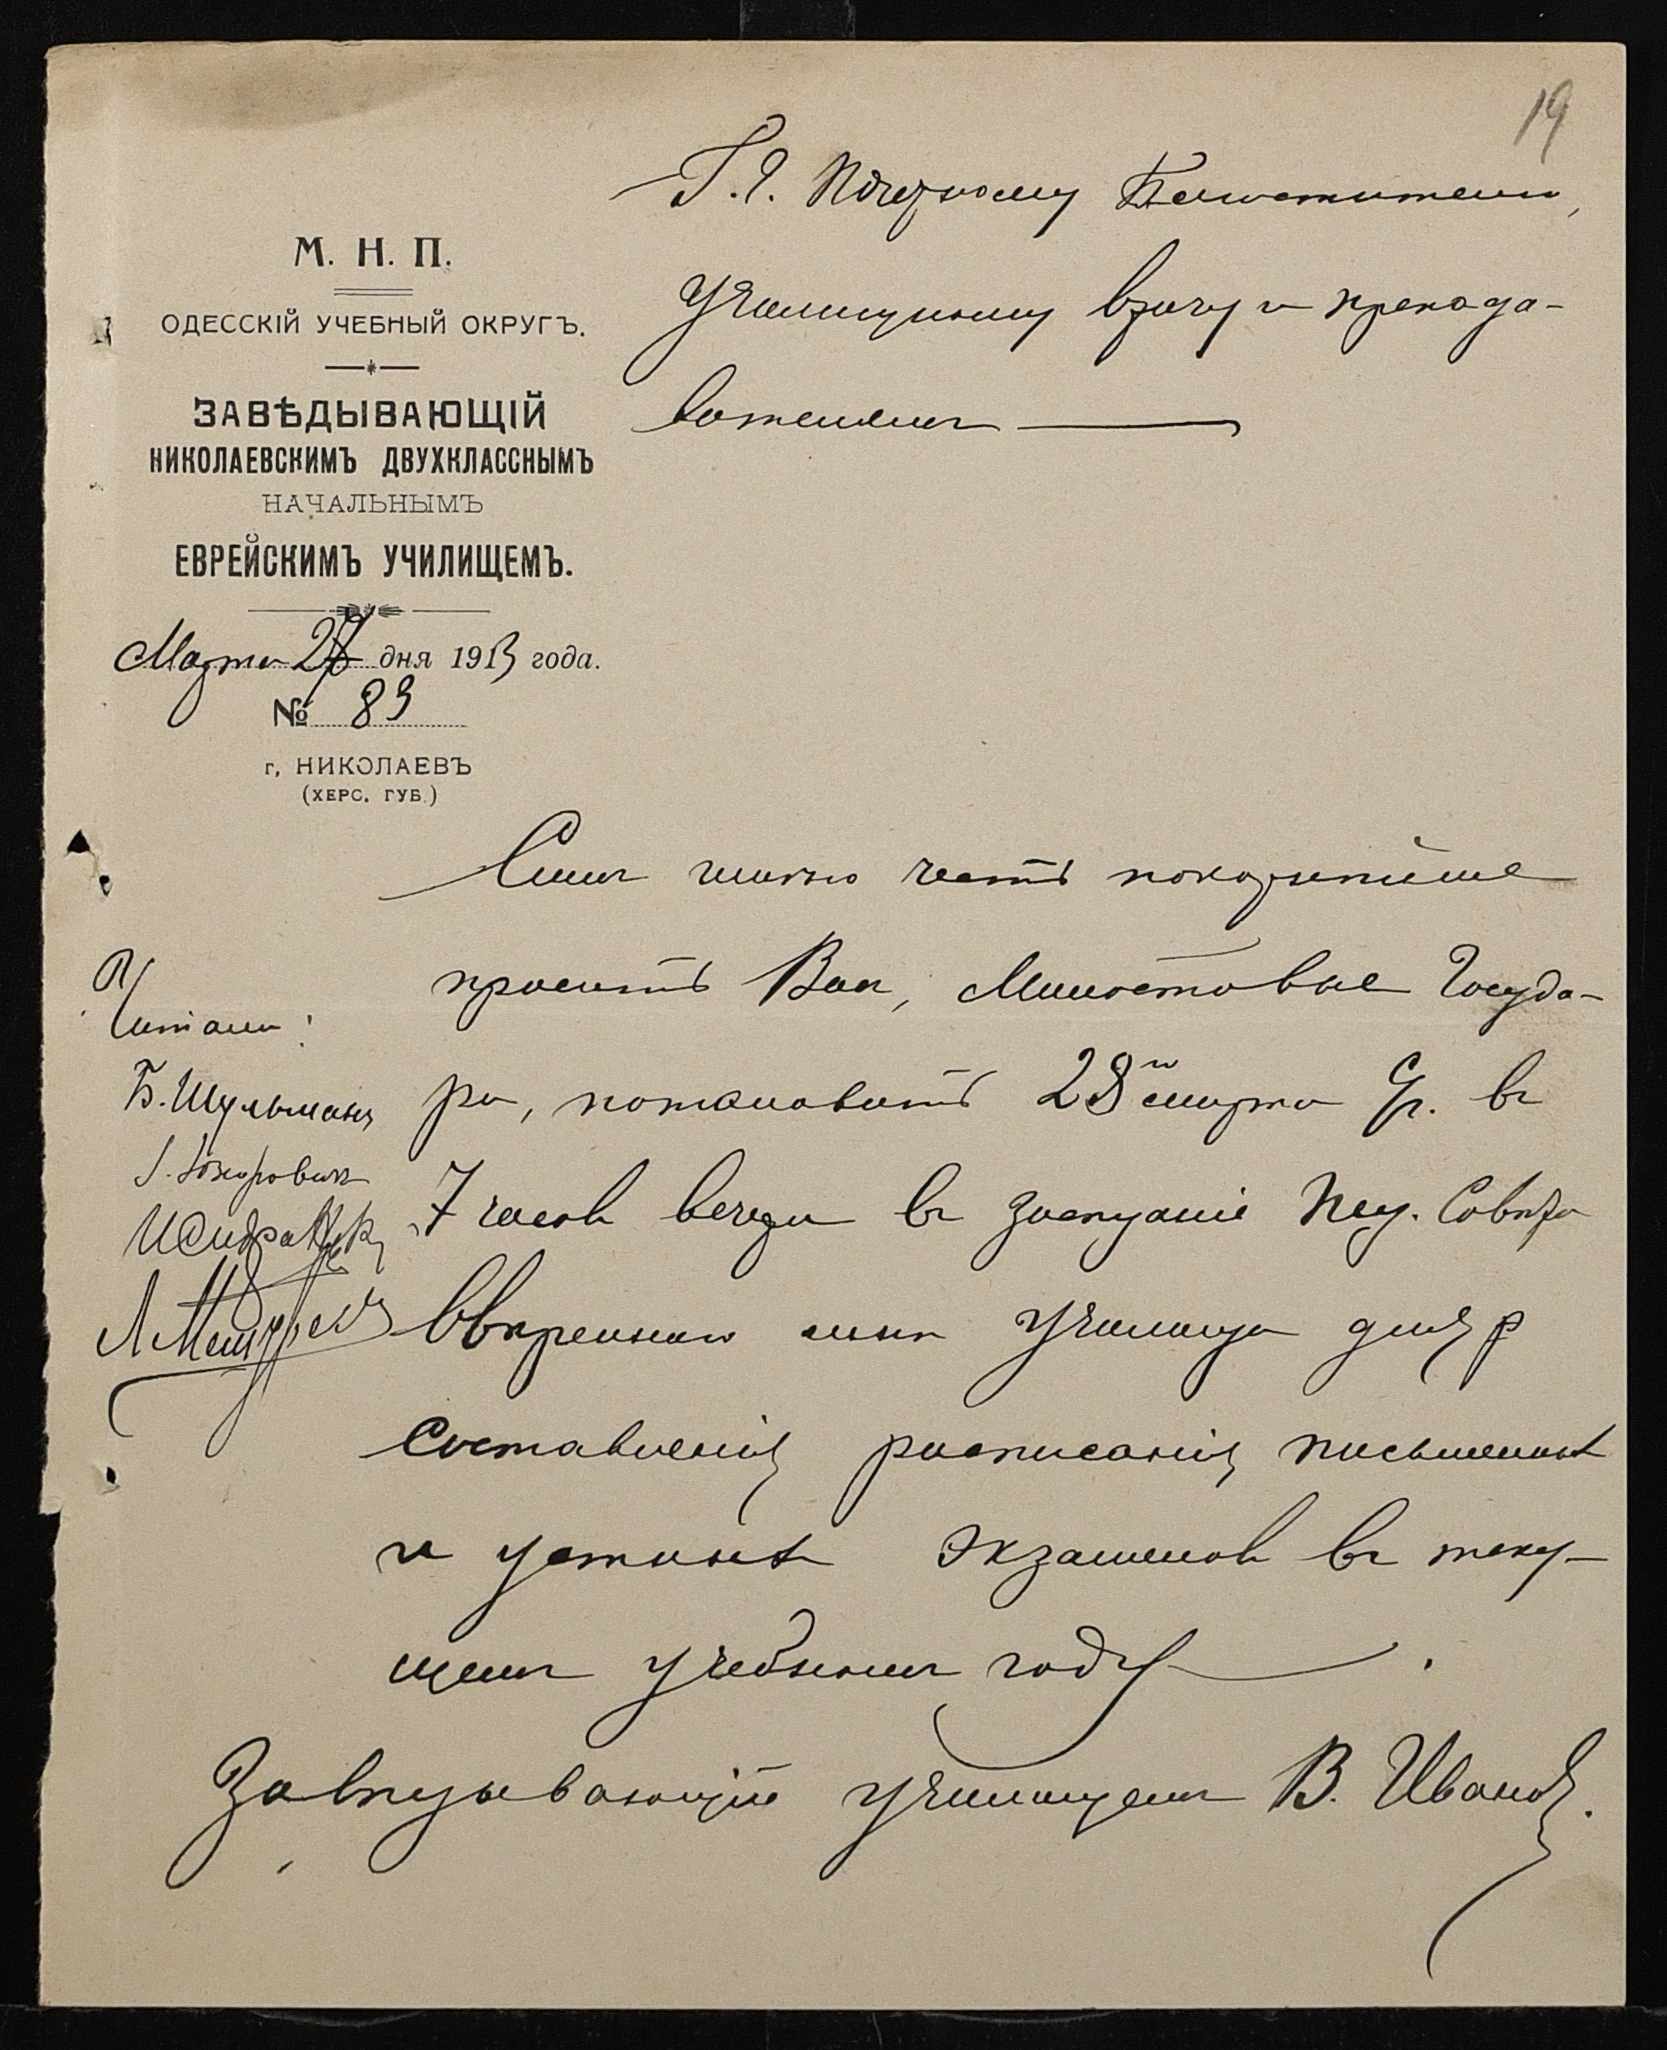 19
Г.г. Почетному Блюстителю,
Училищному врачу и препода-
вателямъ
М. Н. П.
ОДЕССКІЙ УЧЕБНЫЙ ОКРУГЪ.
ЗАВѢДЫВАЮЩІЙ
НИКОЛАЕВСКИМЪ ДВУХКЛАССНЫМЪ
НАЧАЛЬНЫМЪ
ЕВРЕЙСКИМЪ УЧИЛИЩЕМЪ.
Марта 27 дня 1913 года.
№ 89
г, НИКОЛАЕВЪ
(ХЕРС. ГУБ.)
Симъ имѣю честь покорнѣйше
просить Васъ, Милостивые Госуда-
ри, пожаловать 28го марта с/г. въ
7 часов вечера въ засѣданіе Пед. Совѣта
ввѣреннаго мнѣ училища для
составленія расписанія письменных
и устных экзаменов въ теку-
щемъ учебномъ году.
Завѣдывающій училищемъ В. Иванов.
Читали:
Б. Шульманъ